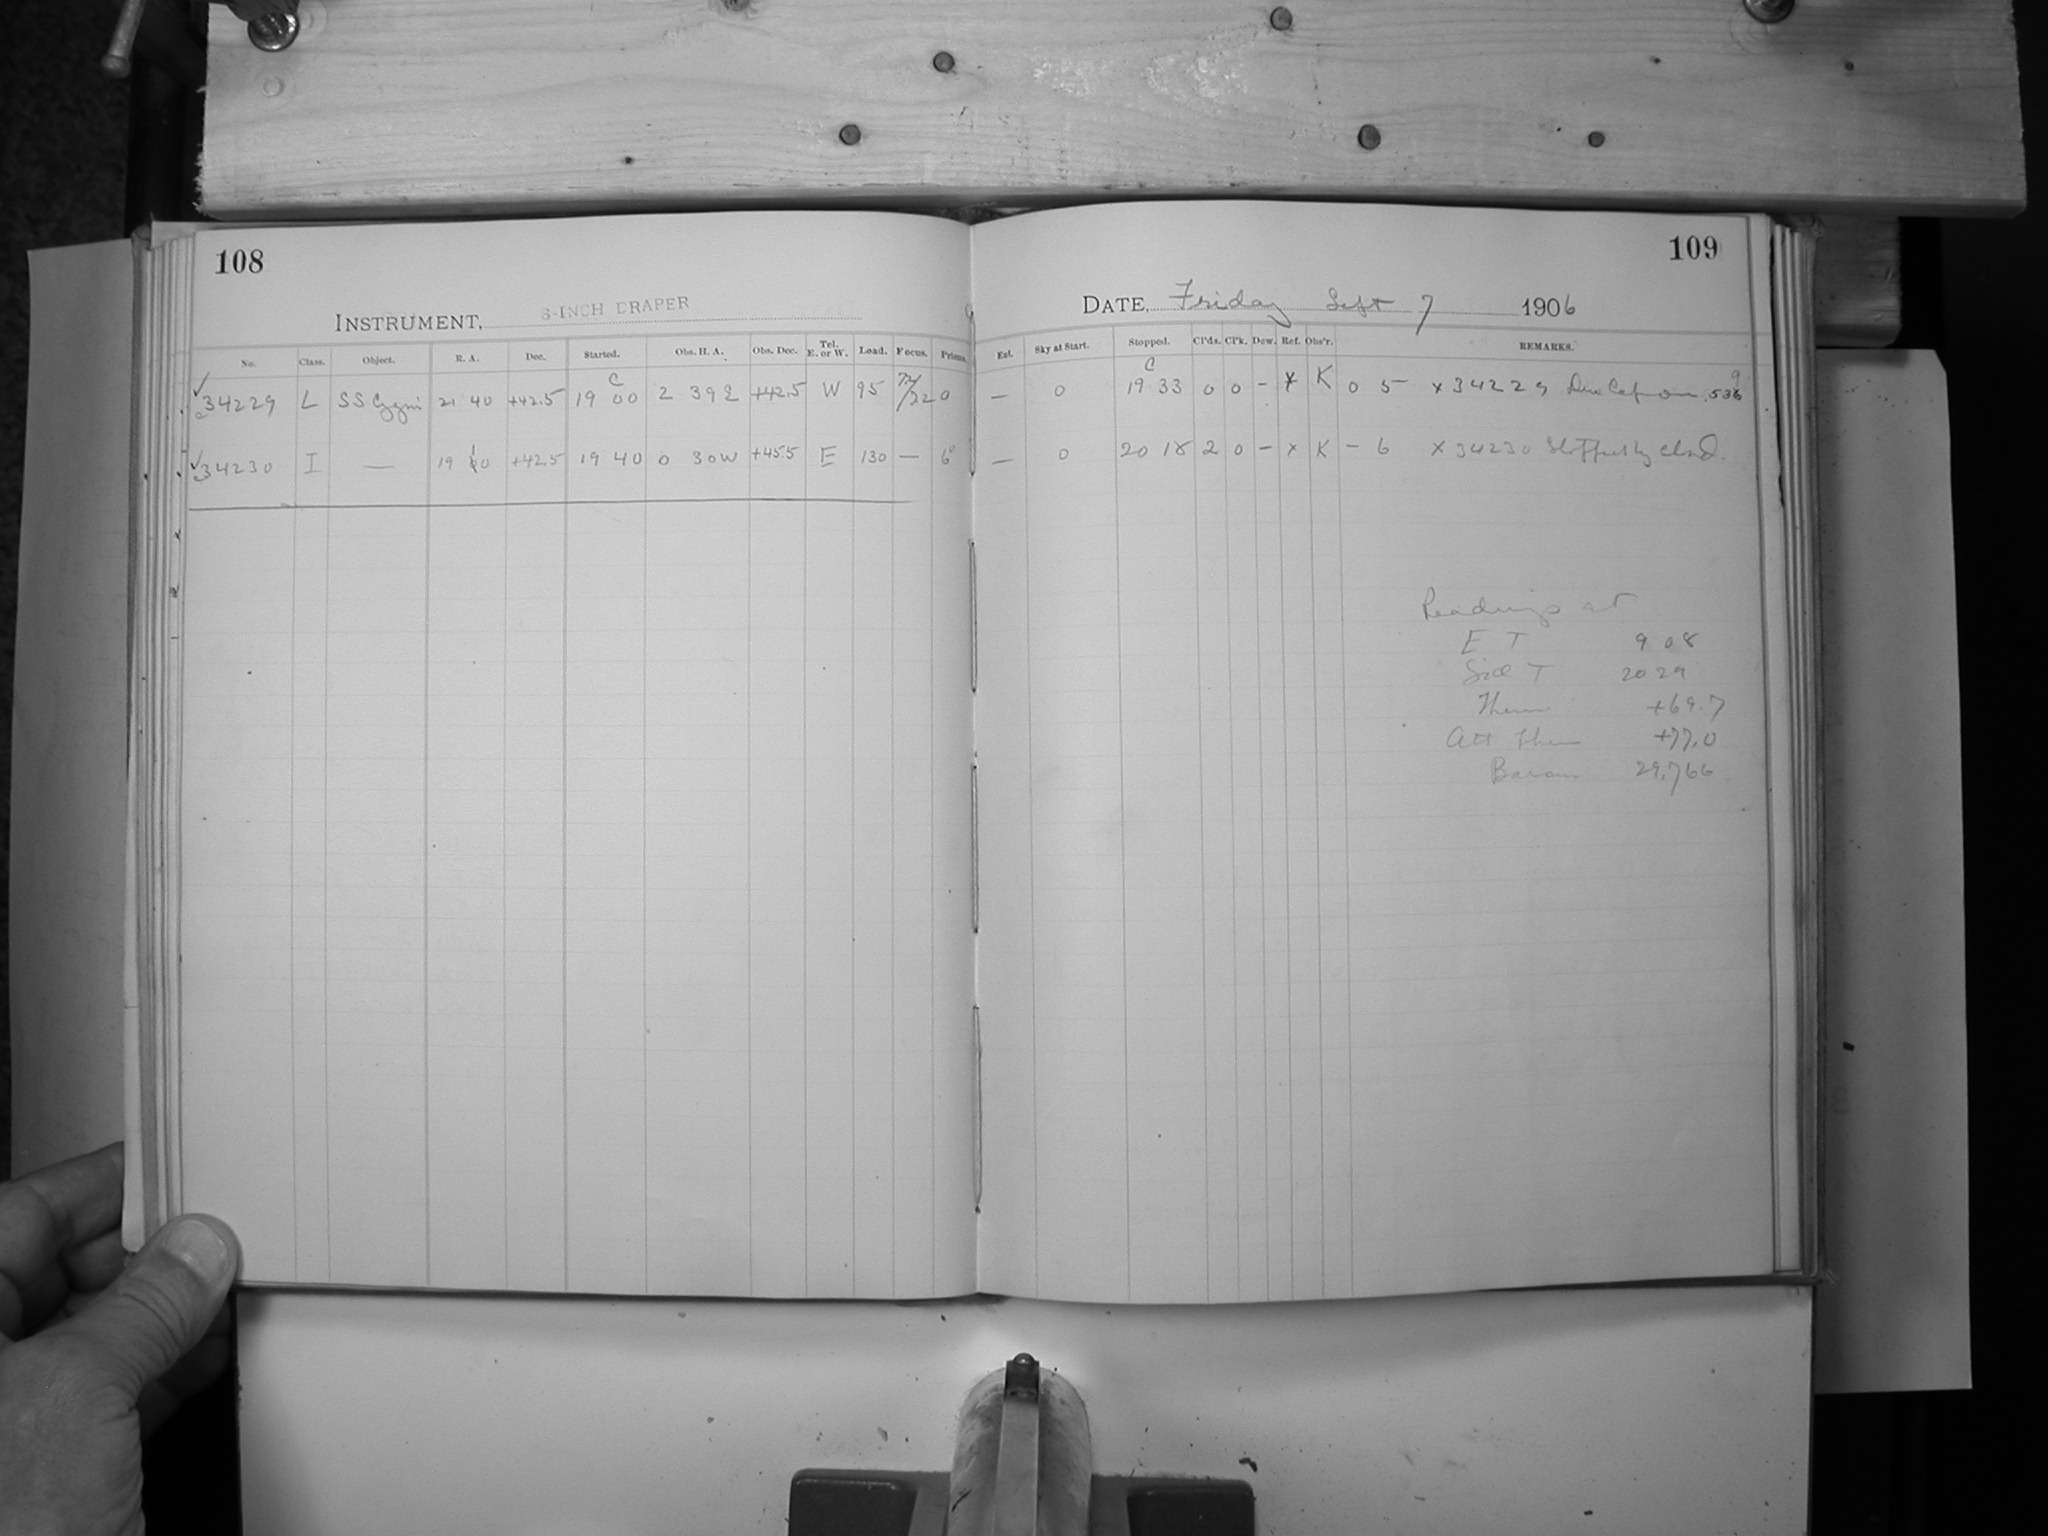 108
INSTRUMENT, 8-INCH DRAPER
No. Class. Object. R. A. Dec. Started. Obs. H. A. Obs. Dec. Tel. E. or W. Lead. Focus. Prisms.
✓34229 L SS Cygni 21 40 +42.5 19 00 2 39 E +42.5 W 95 0
✓34230 I — 19 10 +42.5 19 40 0 30W +45.5 E 130 — 6°
109
DATE, Friday Sept 7 1906
Ext. Sky at Start. Stopped. Cl'ds. Cl'k. Dew. Ref. Obs'r. REMARKS.
— 0 C 19 33 0 0 - x K 0 5 x 34229 Dew Cap on .536
— 0 20 18 2 0 - x K - 6 x 34230 Stopped by cloud.
Readings at
E T 9 08
Sid T 20 29
Therm +69.7
Att Ther +77.0
Barom 29.766